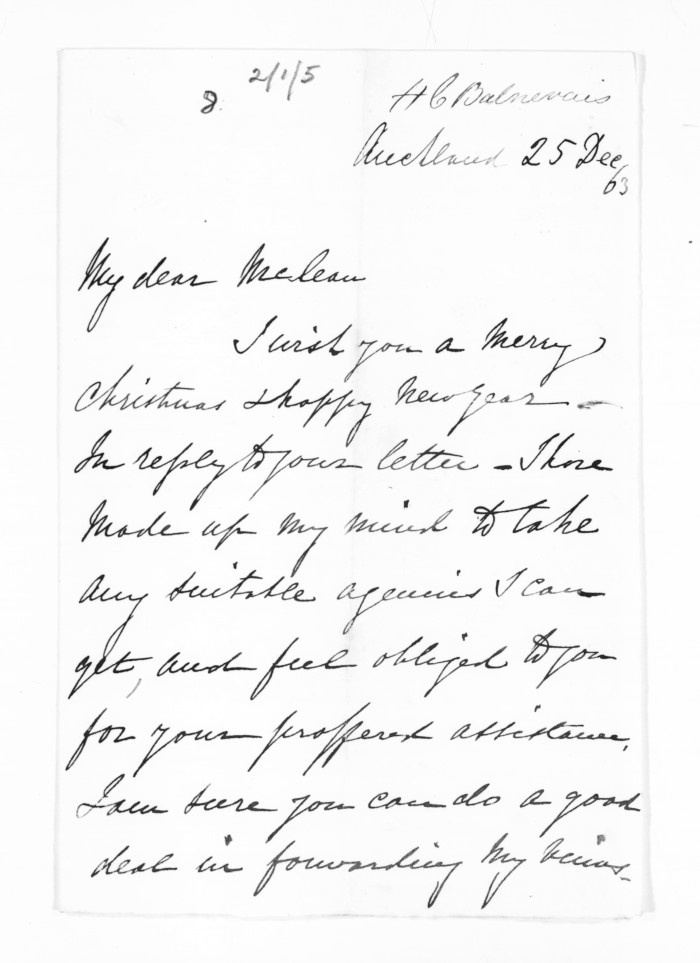 2/1/5
8.
H C Balnevais
Auckland 25 Dec
63
My dear McLean
I wish you a Merry
Christmas & happy New Year -
In reply to your letter - I have
Made up my mind to take
any suitable agencies I can
get, and feel obliged to you
for your proffered assistance.
I am sure you can do a good
deal in forwarding my views -